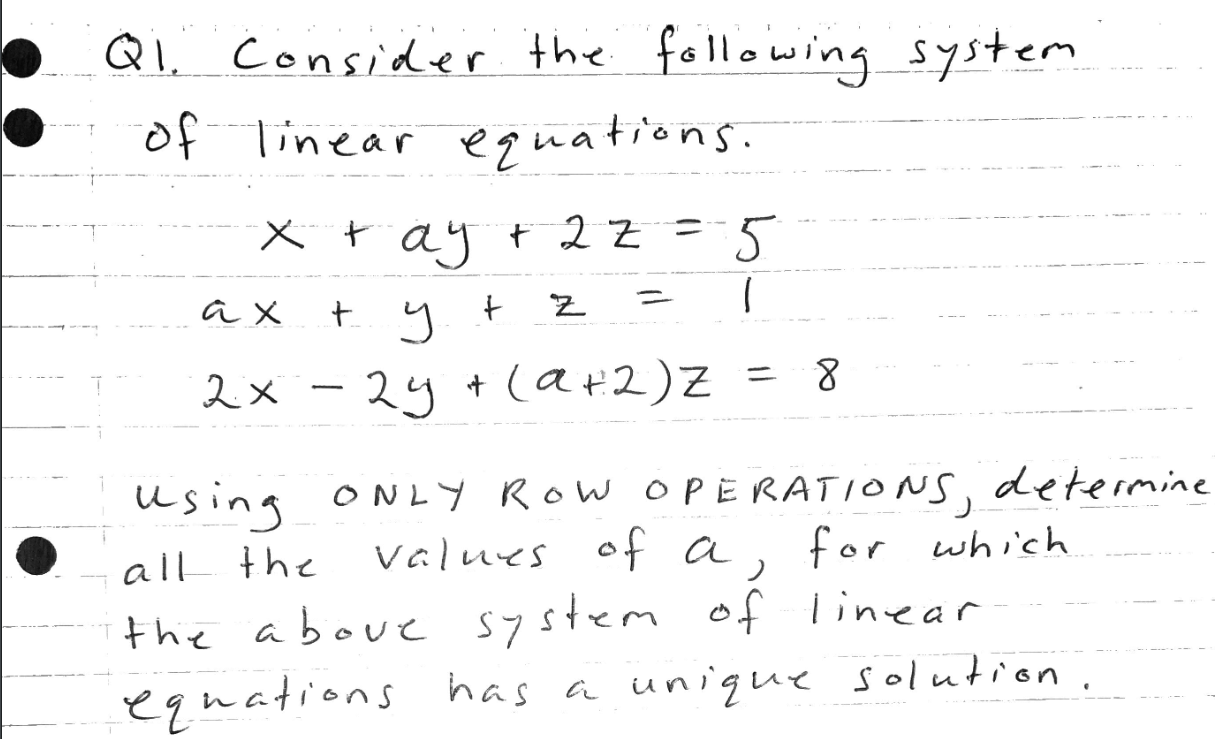 Q1. Consider the following system
of linear equations.
x + ay + 2z = 5
ax + y + z = 1
2x - 2y + (a+2)z = 8
using ONLY ROW OPERATIONS, determine
all the values of a, for which
the above system of linear
equations has a unique solution.